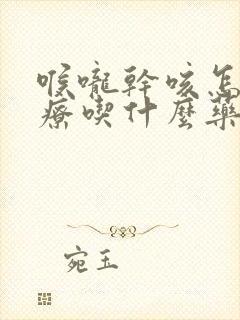 喉嚨幹咳怎
療喫什麼藥
宛玉